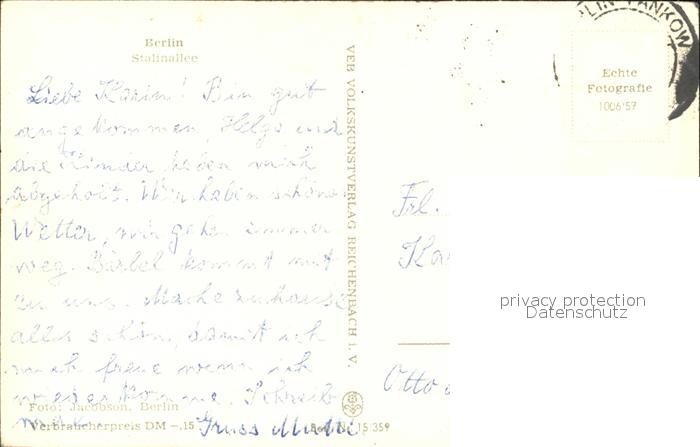 Berlin
Stalinallee
Liebe Karin! Bin gut
angekommen, Helga und
die Kinder haben mich
abgeholt. Wir haben schönes
Wetter, wir gehen immer
weg. Bärbel kommt mit
zu uns. Mache zuhause
alles schön, damit ich
mich freue wenn ich
wiederkomme. Schreib
mal.
Gruss Mutti
Foto: Jacobson, Berlin
Verbraucherpreis DM -.15
15 359
VEB VOLKSKUNSTVERLAG REICHENBACH I. V.
LIN PANKOW
Echte
Fotografie
1006/57
Frl.
Ka
Otto
privacy protection
Datenschutz